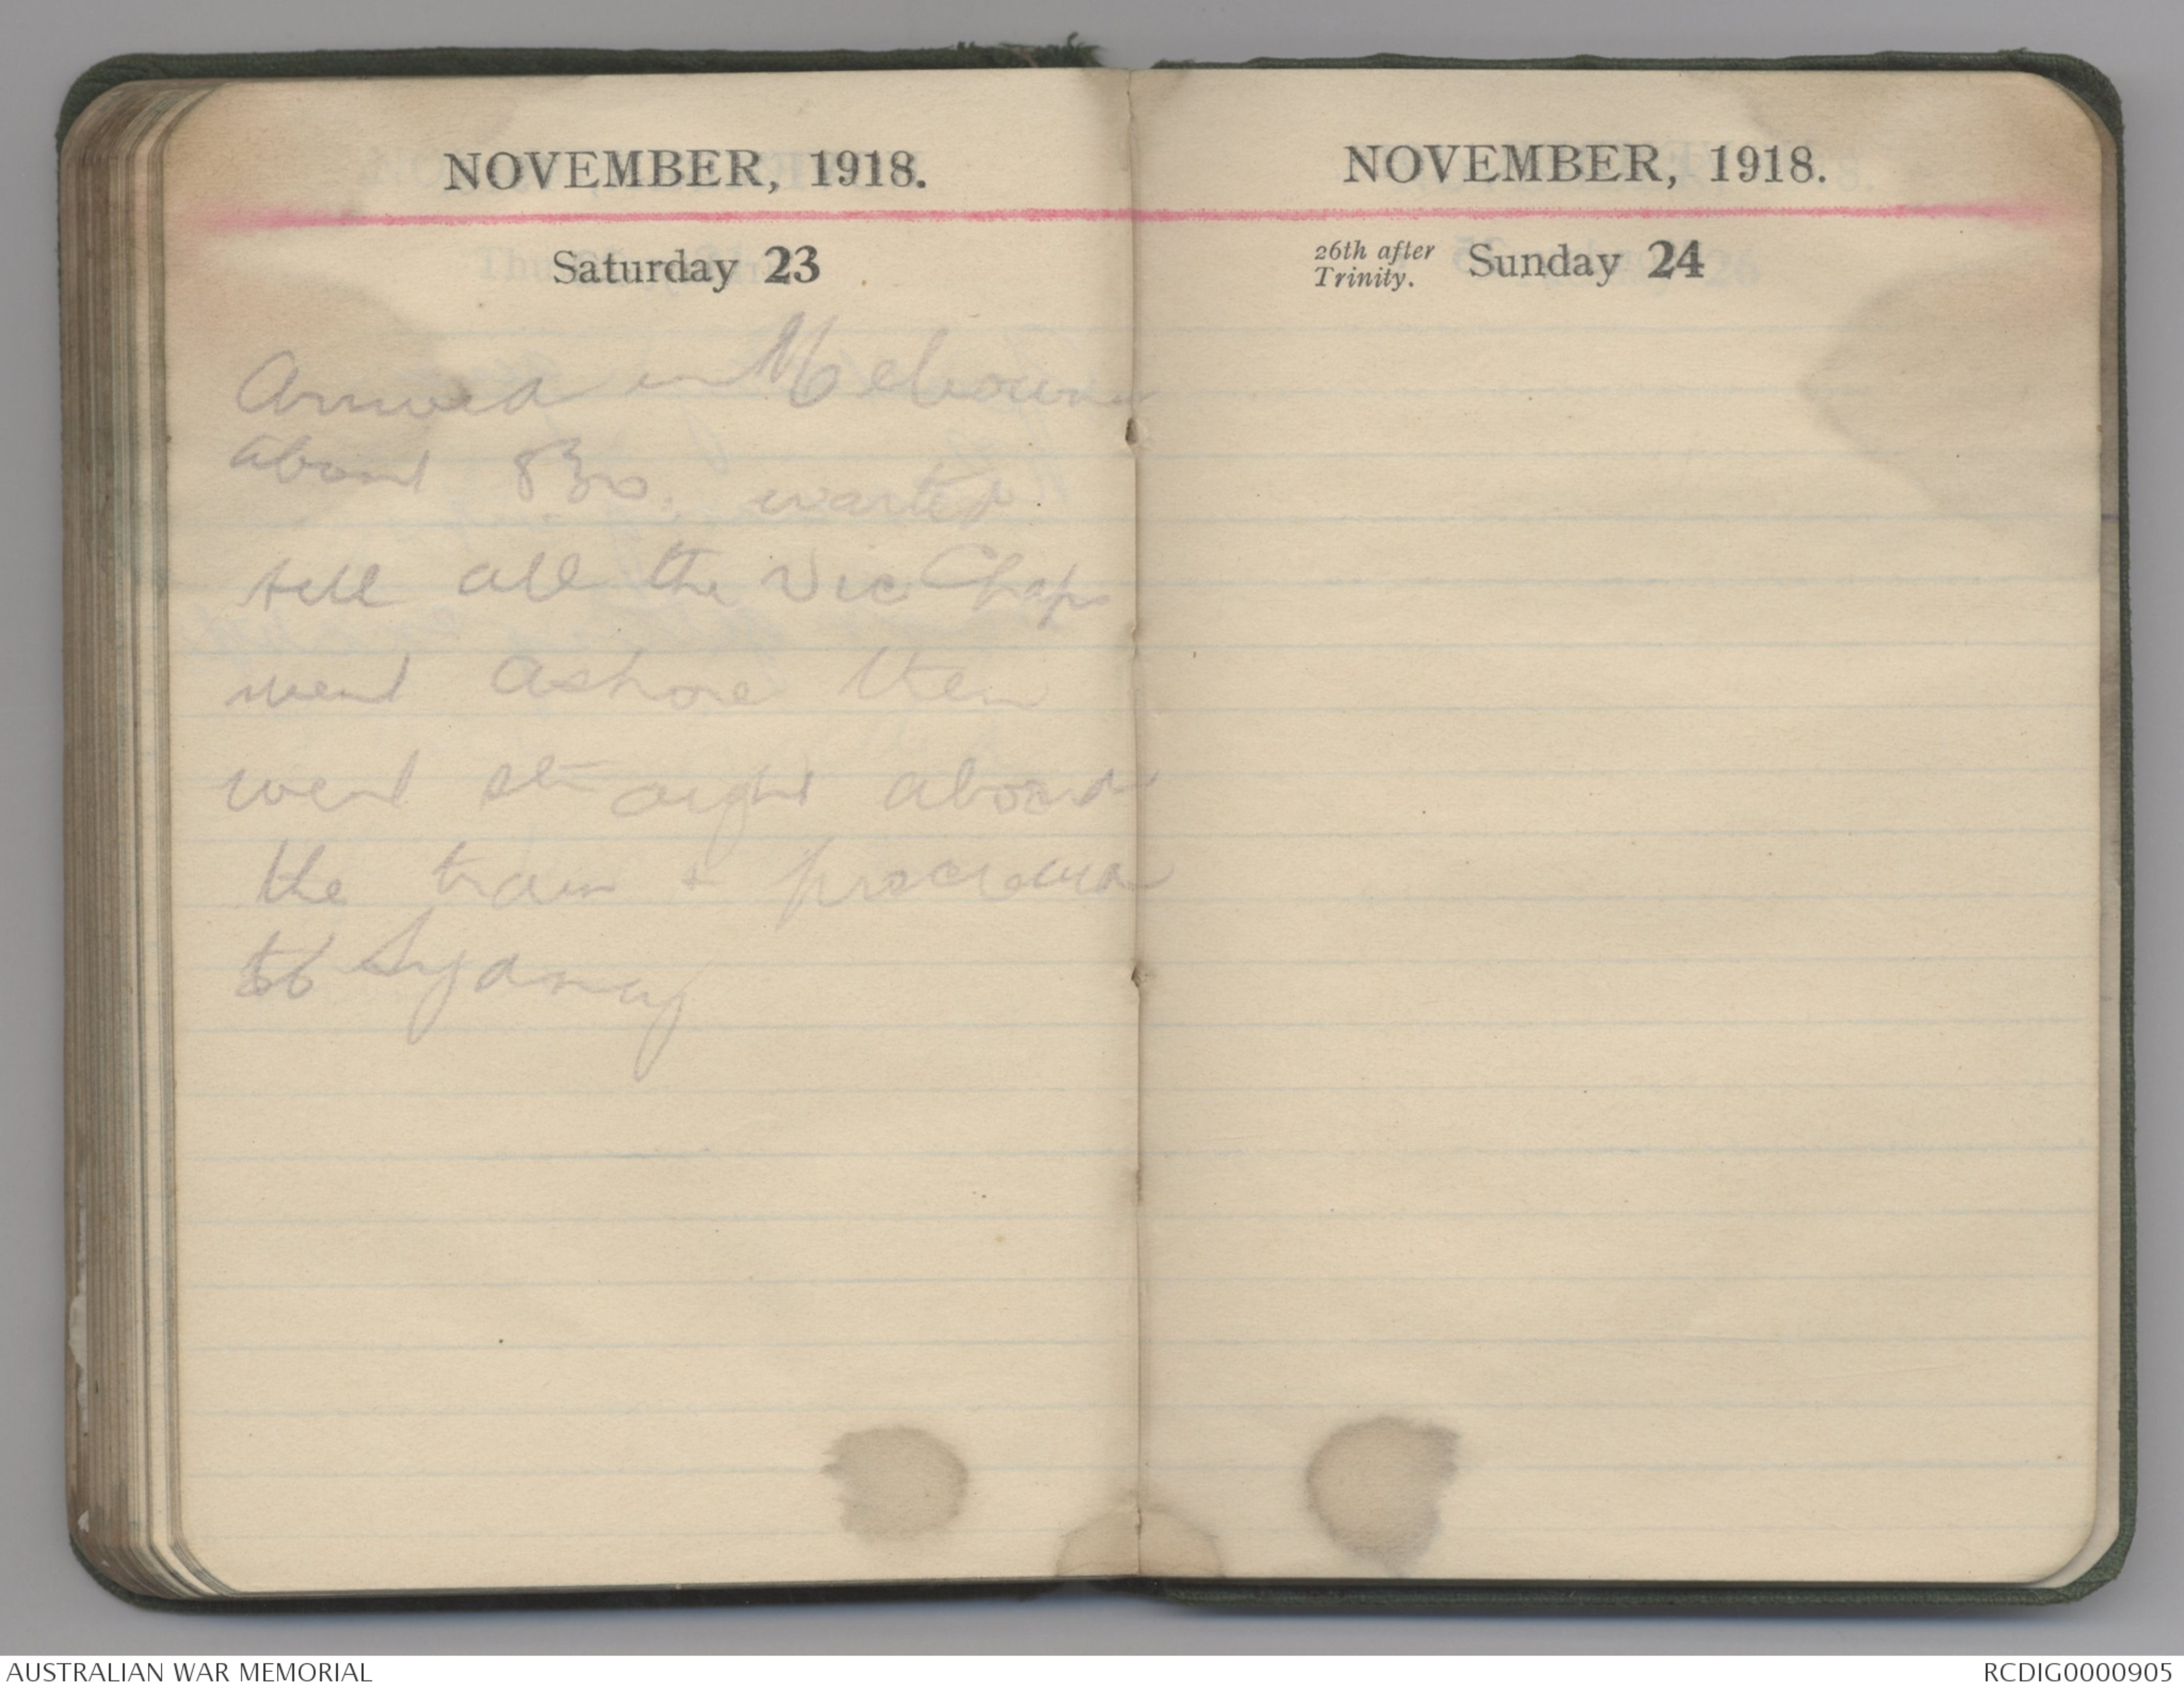 NOVEMBER, 1918.
Saturday 23
Arrived in Melbourne
about 830. waited
till all the Vic Chaps
went ashore then
went straight aboard
the train & proceeded
to Sydney
NOVEMBER, 1918.
26th after Trinity. Sunday 24
AUSTRALIAN WAR MEMORIAL
RCDIG0000905